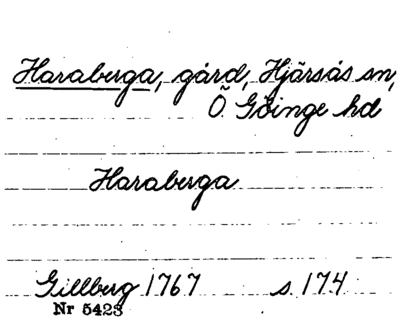 Haraberga, gård, Hjärsås sn,
Ö. Göinge hd
Haraberga
Gillberg 1767 s. 174
Nr 5423